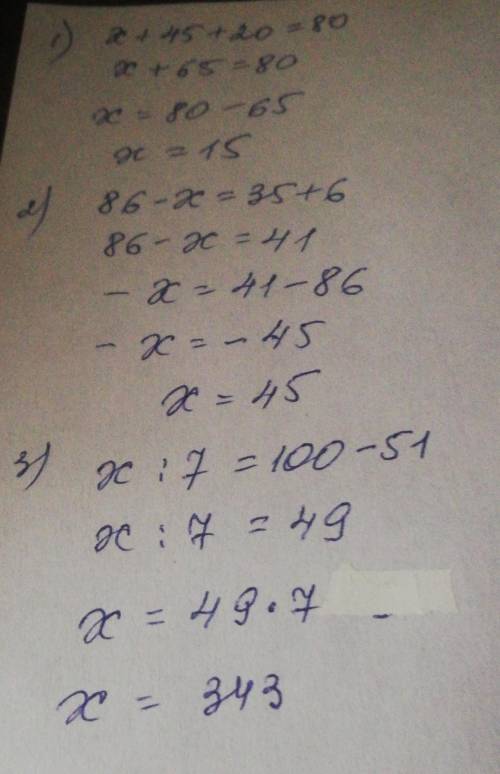 1) x + 45 + 20 = 80
x + 65 = 80
x = 80 - 65
x = 15
2) 86 - x = 35 + 6
86 - x = 41
- x = 41 - 86
- x = - 45
x = 45
3) x : 7 = 100 - 51
x : 7 = 49
x = 49 · 7
x = 343